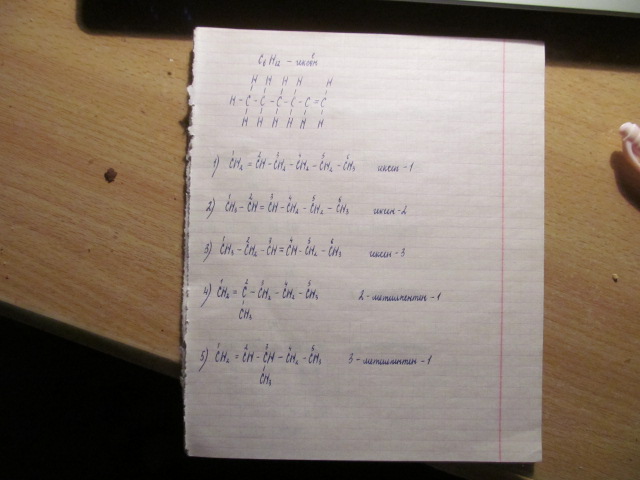 C₆H₁₂ - гексен
H H H H H
H - C - C - C - C - C = C
H H H H H H
1) CH₂ = CH - CH₂ - CH₂ - CH₂ - CH₃ гексен - 1
2) CH₃ - CH = CH - CH₂ - CH₂ - CH₃ гексен - 2
3) CH₃ - CH₂ - CH = CH - CH₂ - CH₃ гексен - 3
4) CH₂ = C - CH₂ - CH₂ - CH₃ 2 - метилпентен - 1
CH₃
5) CH₂ = CH - CH - CH₂ - CH₃ 3 - метилпентен - 1
CH₃